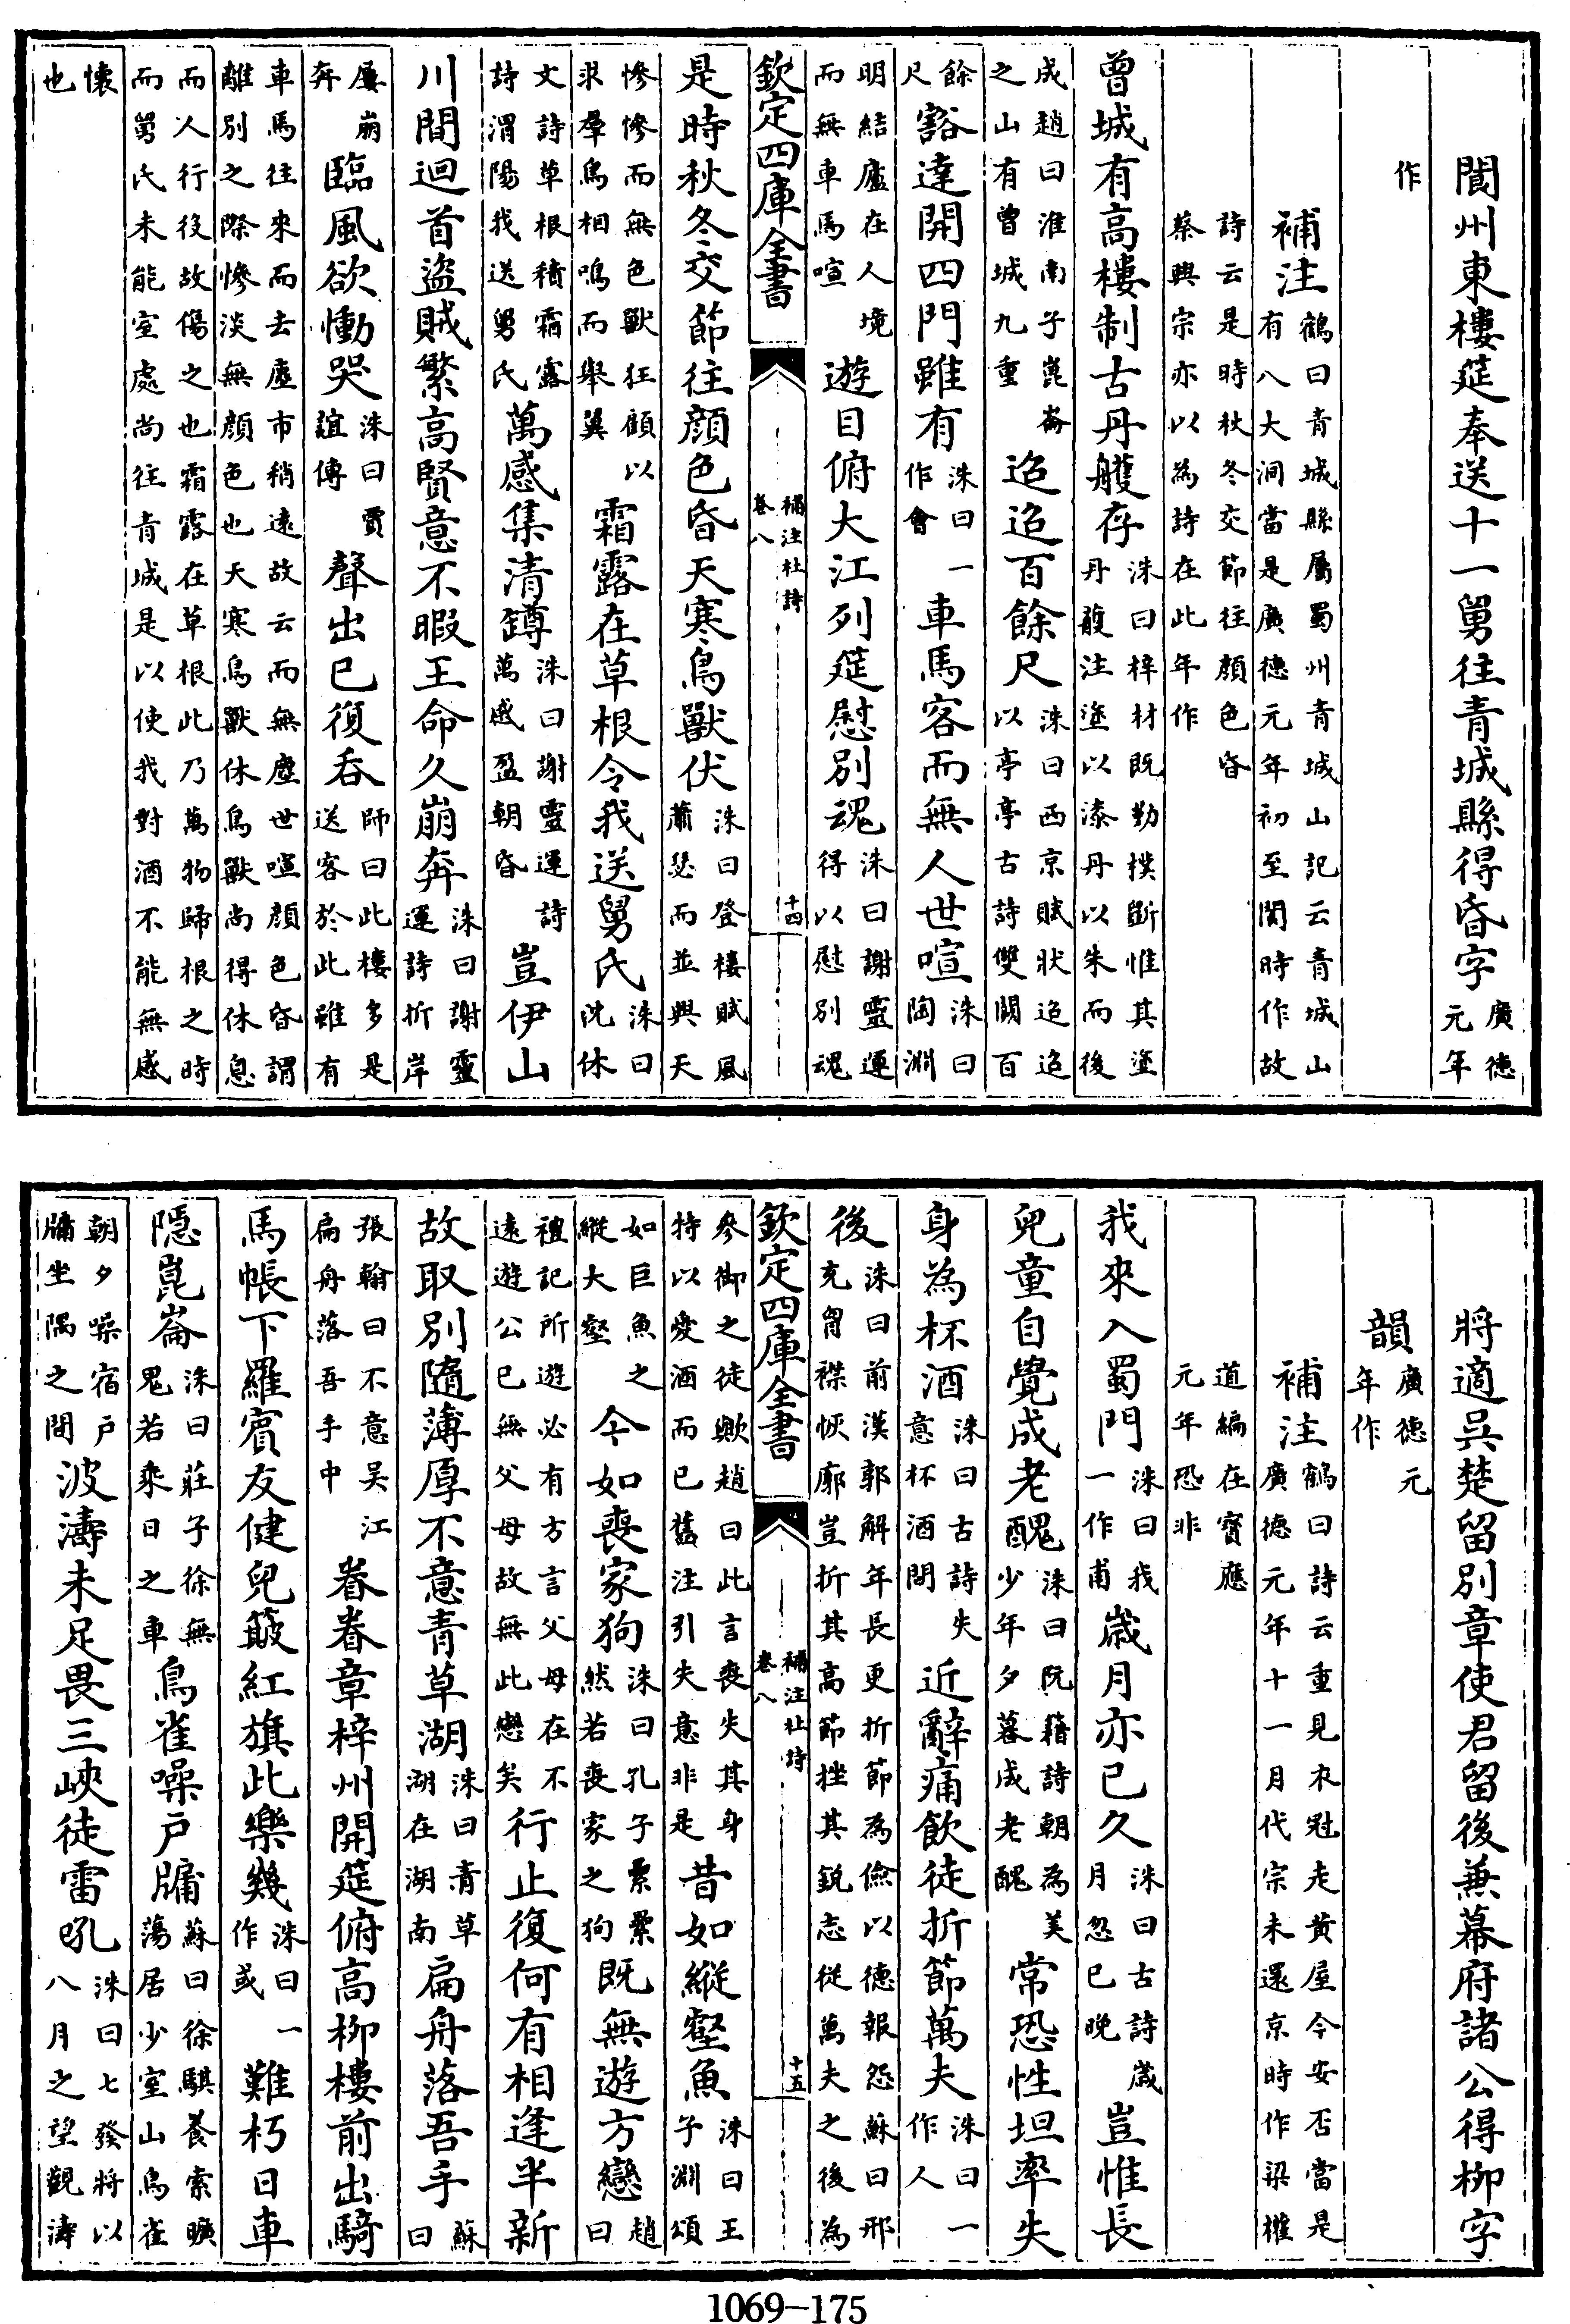 閬州東樓筵奉送十一舅往青城縣得昏字廣德元年
作
補注鶴曰青城縣屬蜀州青城山記云青城山有八大洞當是廣德元年初至閬時作故
詩云是時秋冬交節往顔色昏蔡興宗亦以為詩在此年作
曾城有高樓制古丹雘存洙曰梓材既勤樸斲惟其塗丹雘注塗以漆丹以朱而後
成趙曰淮南子崑崙之山有曾城九重迢迢百餘尺洙曰西京賦狀迢迢以亭亭古詩雙闕百
餘尺豁達開四門雖有洙曰一作會車馬客而無人世喧洙曰陶淵
明結廬在人境而無車馬喧遊目俯大江列筵慰別魂洙曰謝靈運得以慰別魂
欽定四庫全書 補注杜詩卷八 十四
是時秋冬交節往顔色昏天寒鳥獸伏洙曰登樓賦風蕭瑟而並興天
慘慘而無色獸狂顧以求羣鳥相鳴而舉翼霜露在草根今我送舅氏洙曰沈休
文詩草根積霜露詩渭陽我送舅氏萬感集清罇洙曰謝靈運詩萬感盈朝昏豈伊山
川間迴首盜賊繁高賢意不暇王命久崩奔洙曰謝靈運詩折岸
屢崩奔臨風欲慟哭洙曰賈誼傳聲出已復吞師曰此樓多是送客於此雖有
車馬往來而去塵市稍遠故云而無塵世喧顔色昏謂離別之際慘淡無顔色也天寒鳥獸休鳥獸尚得休息
而人行役故傷之也霜露在草根此乃萬物歸根之時而舅氏未能室處尚往青城是以使我對酒不能無感
懷也
將適吳楚留別章使君留後兼幕府諸公得柳字
韻廣德元年作
補注鶴曰詩云重見衣冠走黄屋今安否當是廣德元年十一月代宗未還京時作梁權
道編在寳應元年恐非
我來入蜀門洙曰我一作甫歲月亦已久洙曰古詩歲月忽已晚豈惟長
兒童自覺成老醜洙曰阮籍詩朝為美少年夕暮成老醜常恐性坦率失
身為杯酒洙曰古詩失意杯酒間近辭痛飲徒折節萬夫洙曰一作人
後洙曰前漢郭解年長更折節為儉以德報怨蘇曰邢充胷襟恢廓豈折其高節挫其鋭志從萬夫之後為
欽定四庫全書 補注杜詩卷八 十五
參御之徒歟趙曰此言喪失其身特以愛酒而已舊注引失意非是昔如縱壑魚洙曰王子淵頌
如巨魚之縱大壑今如喪家狗洙曰孔子纍纍然若喪家之狗既無遊方戀趙曰
禮記所遊必有方言父母在不遠遊公已無父母故無此戀矣行止復何有相逢半新
故取別隨薄厚不意青草湖洙曰青草湖在湖南扁舟落吾手蘇曰
張翰曰不意吴江扁舟落吾手中眷眷章梓州開筵俯高柳樓前出騎
馬帳下羅賓友健兒簸紅旗此樂幾洙曰一作或難朽日車
隱崑崙洙曰莊子徐無鬼若乘日之車鳥雀噪戶牖蘇曰徐騏養素曠蕩居少室山鳥雀
朝夕噪宿戶牖坐隅之間波濤未足畏三峽徒雷吼洙曰七發將以八月之望觀濤
1069-175